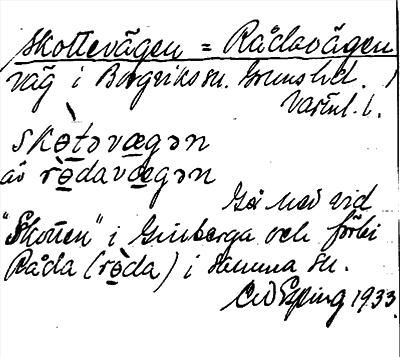 Skottevägen = Rådavägen
väg i Borgviks sn. Grums hd.
Värml. l.
skɵ̀tǝvægǝn
äv rɵ̀davægǝn
Går ned vid
"Skotten" i Ginberga och förbi
Råda (rɵ̀da) i samma sn.
Esping 1933.